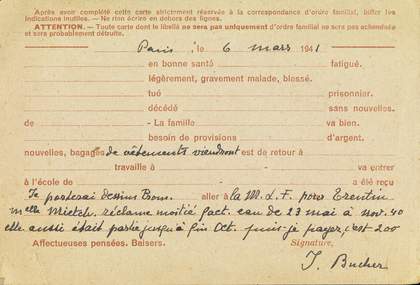 Après avoir complété cette carte strictement réservée à la correspondance d'ordre familial, biffer les
indications inutiles. — Ne rien écrire en dehors des lignes.
ATTENTION. — Toute carte dont le libellé ne sera pas uniquement d'ordre familial ne sera pas acheminée
et sera probablement détruite.
Paris, le 6 mars 1941
en bonne santé fatigué.
légèrement, gravement malade, blessé.
tué prisonnier.
décédé sans nouvelles.
de - La famille va bien.
besoin de provisions d'argent.
nouvelles, bagages de vêtements viendront est de retour à
travaille à va entrer
à l'école de a été reçu
Je porterai dessins aller à la M.d.F. pour
Melle réclame moitié fact. eau de 23 mai à nov. 40
elle aussi était partie jusqu'à fin Oct. puis-je payer, c'est 200
Affectueuses pensées. Baisers. Signature,
J. Bucher